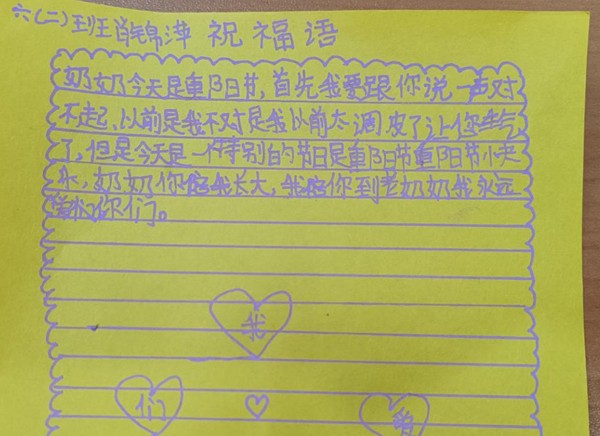 六(二)班肖锦萍 祝福语
奶奶今天是重阳日节,首先我要跟你说一声对
不起,以前是我不对是我以前太调皮了让你生气
了,但是今天是一个特别的节日是重阳节重阳节快
乐,奶奶你陪我长大,我陪你到老奶奶我永远
爱你们。
我
们
爱